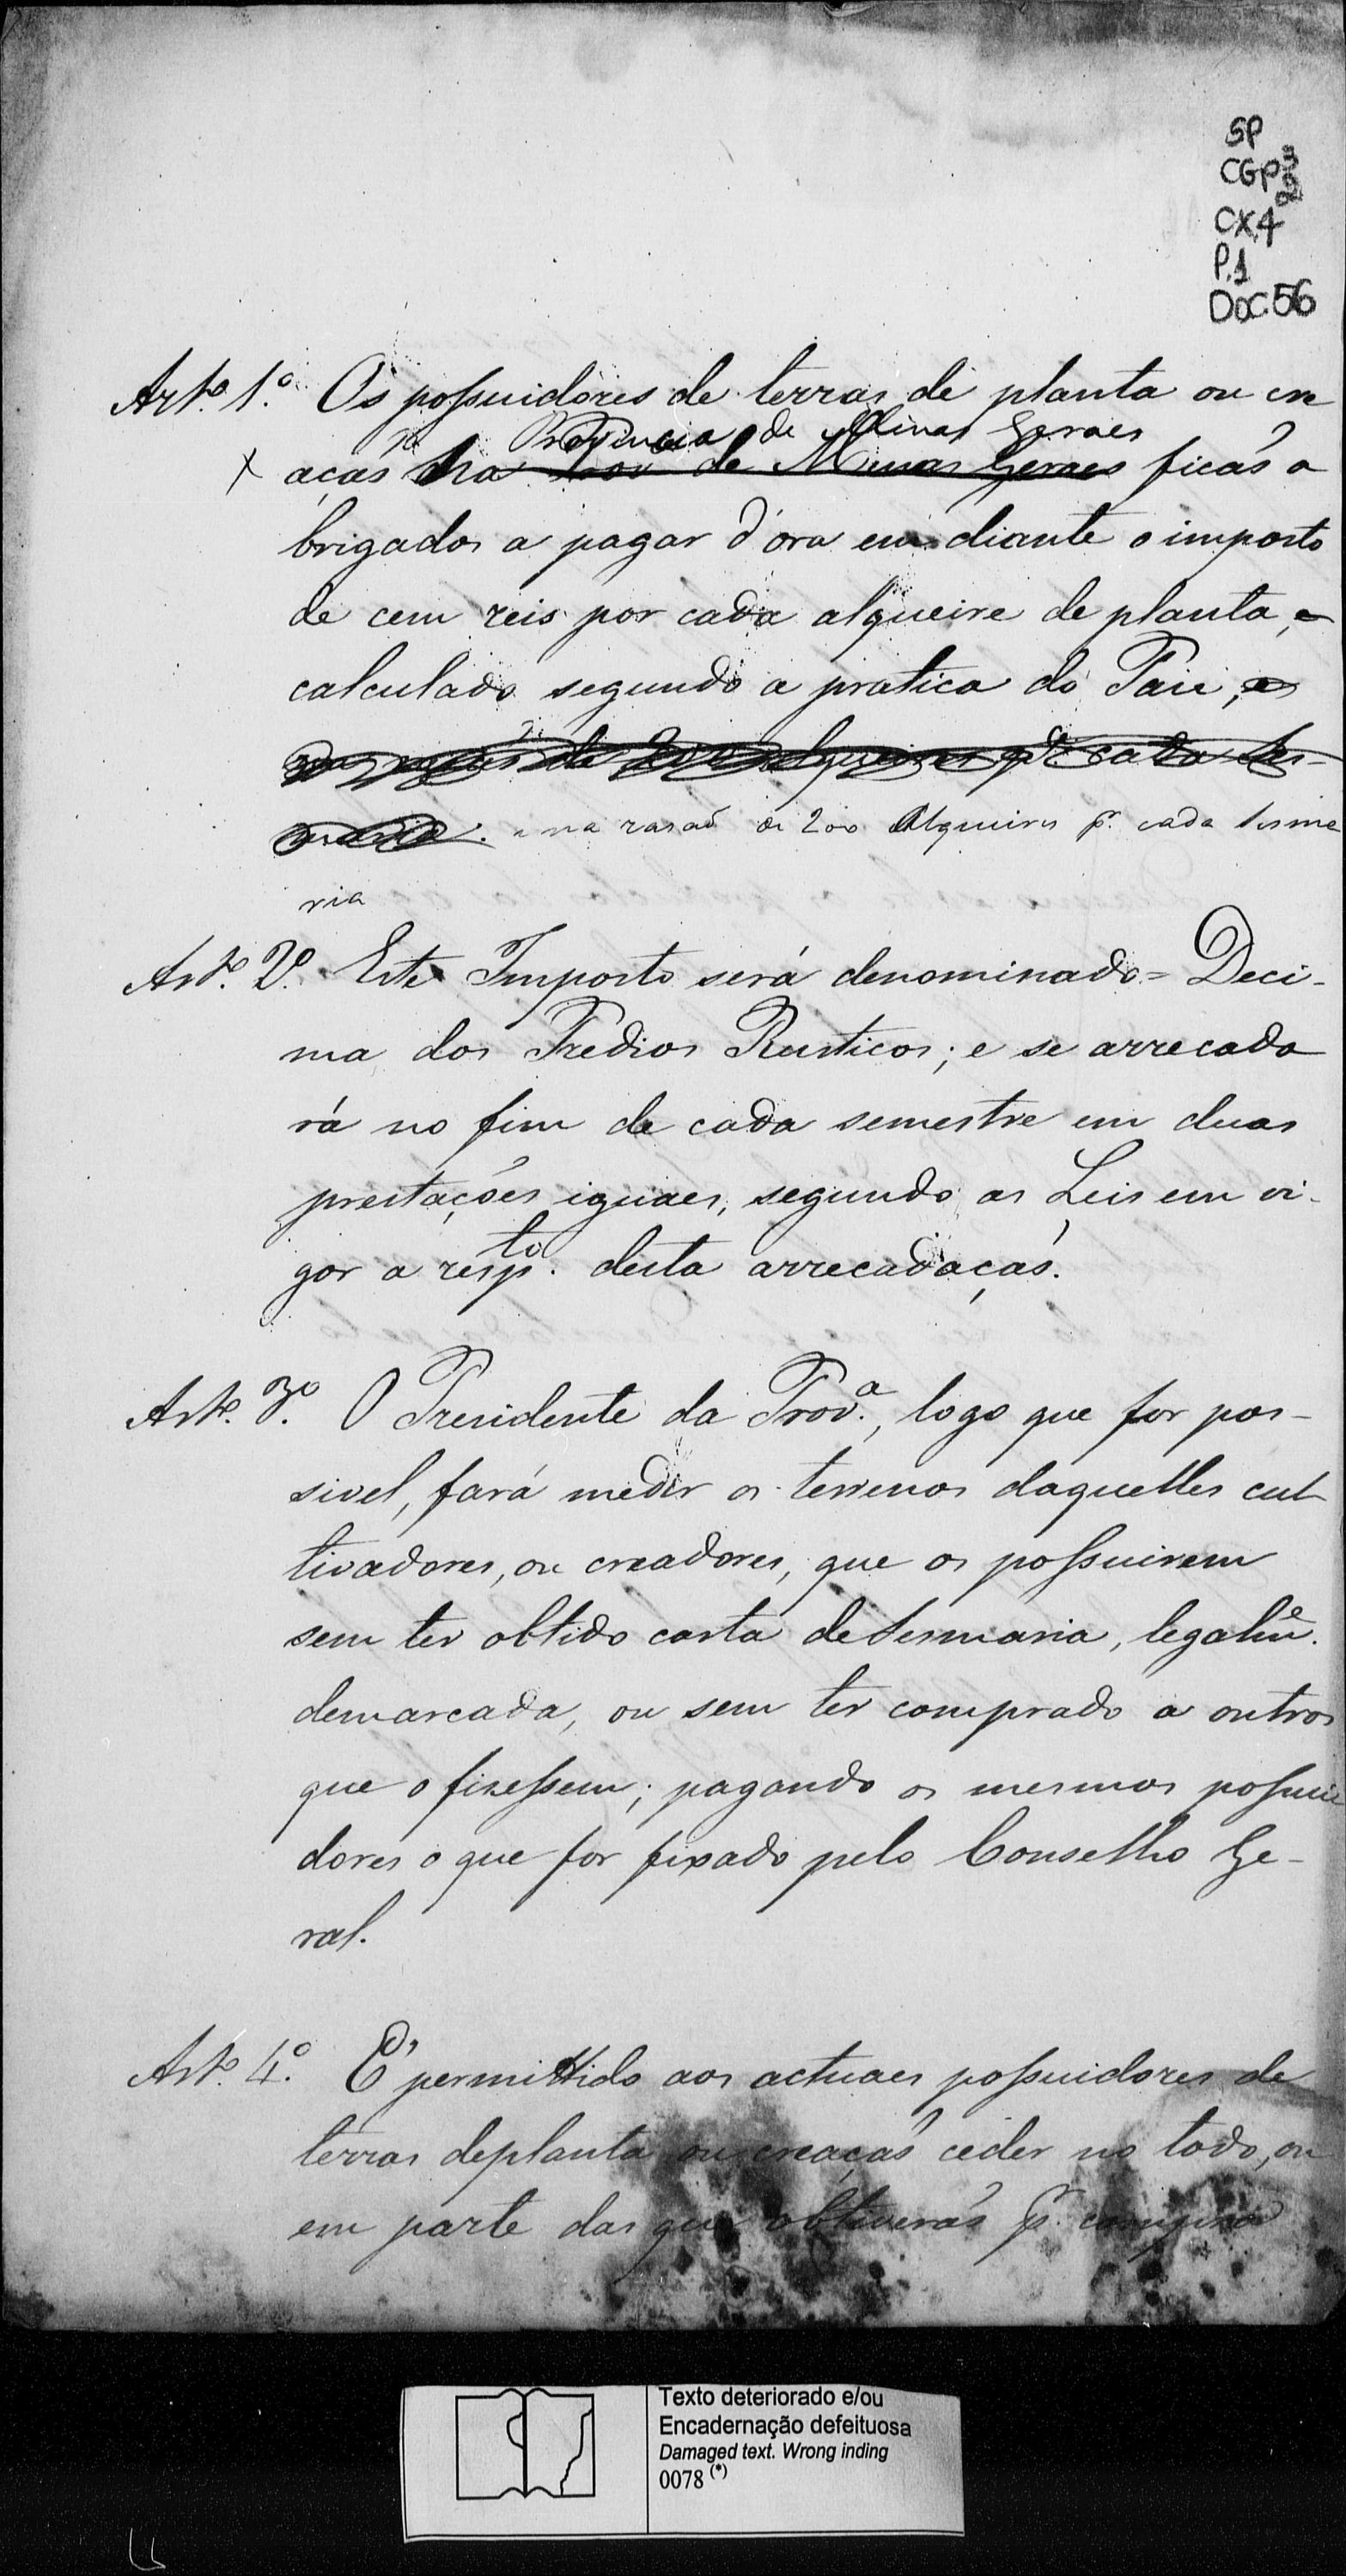 SP
CGP 3
2
CX.4
P.1
DOC.56
Art.º 1.º Os possuidores de terras de planta ou cre
na Provincia de Minas Geraes
x açaõ na Prov de Minas Geraes ficaõ o
brigados a pagar d'óra em diante o imposto
de cem reis por cada alqueire de planta, e
calculado segundo a pratica do Paiz, e
na razaõ de 200 alqueires pr. cada Ses-
maria. e na rasaõ de 200 Alqueires pr. cada sesma
ria
Art.º 2.º Este Imposto será denominado = Deci-
ma dos Predios Rusticos; e se arrecada
rá no fim de cada semestre em duas
prestações iguaes, segundo as Leis em vi-
gor a resp.to desta arrecadaçaõ.
Art.º 3.º O Presidente da Prov.a, logo que for pos-
sivel, fará medir os terrenos daquelles cul
tivadores, ou creadores, que os possuirem
sem ter obtido carta de Sesmaria, legalm.e
demarcada, ou sem ter comprado a outros
que o fizessem; pagando os mesmos possui
dores o que for fixado pelo Conselho Ge-
ral.
Art.º 4.º É permittido aos actuaes possuidores de
terras de planta ou creaçaõ ceder no todo, ou
em parte das que obtiveraõ pr. compra
Texto deteriorado e/ou
Encadernação defeituosa
Damaged text. Wrong inding
0078 (*)